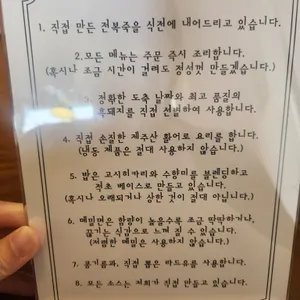 1. 직접 만든 전복죽을 식전에 내어드리고 있습니다.
2.모든 메뉴는 주문 즉시 조리합니다.
(혹시나 조금 시간이 걸려도 정성껏 만들겠습니다.)
3. 정확한 도축 날짜와 최고 품질의
흑돼지를 직접 선별하여 사용합니다.
4. 직접 손질한 제주산 활어로 요리를 합니다.
(냉동 제품은 절대 사용하지 않습니다.)
5. 밥은 고시히카리와 수향미를 블렌딩하고
다시 베이스로 만들고 있습니다.
(혹시나 오래되거나 상한 것이 절대 아닙니다.)
6. 메밀면은 함량이 높을수록 조금 딱딱하거나,
끊기는 식감으로 느껴질 수 있습니다.
(저렴한 메밀은 사용하지 않습니다.)
7. 콩기름과, 직접 뽑은 라드유를 사용합니다.
8. 모든 소스는 저희가 직접 만들고 있습니다.